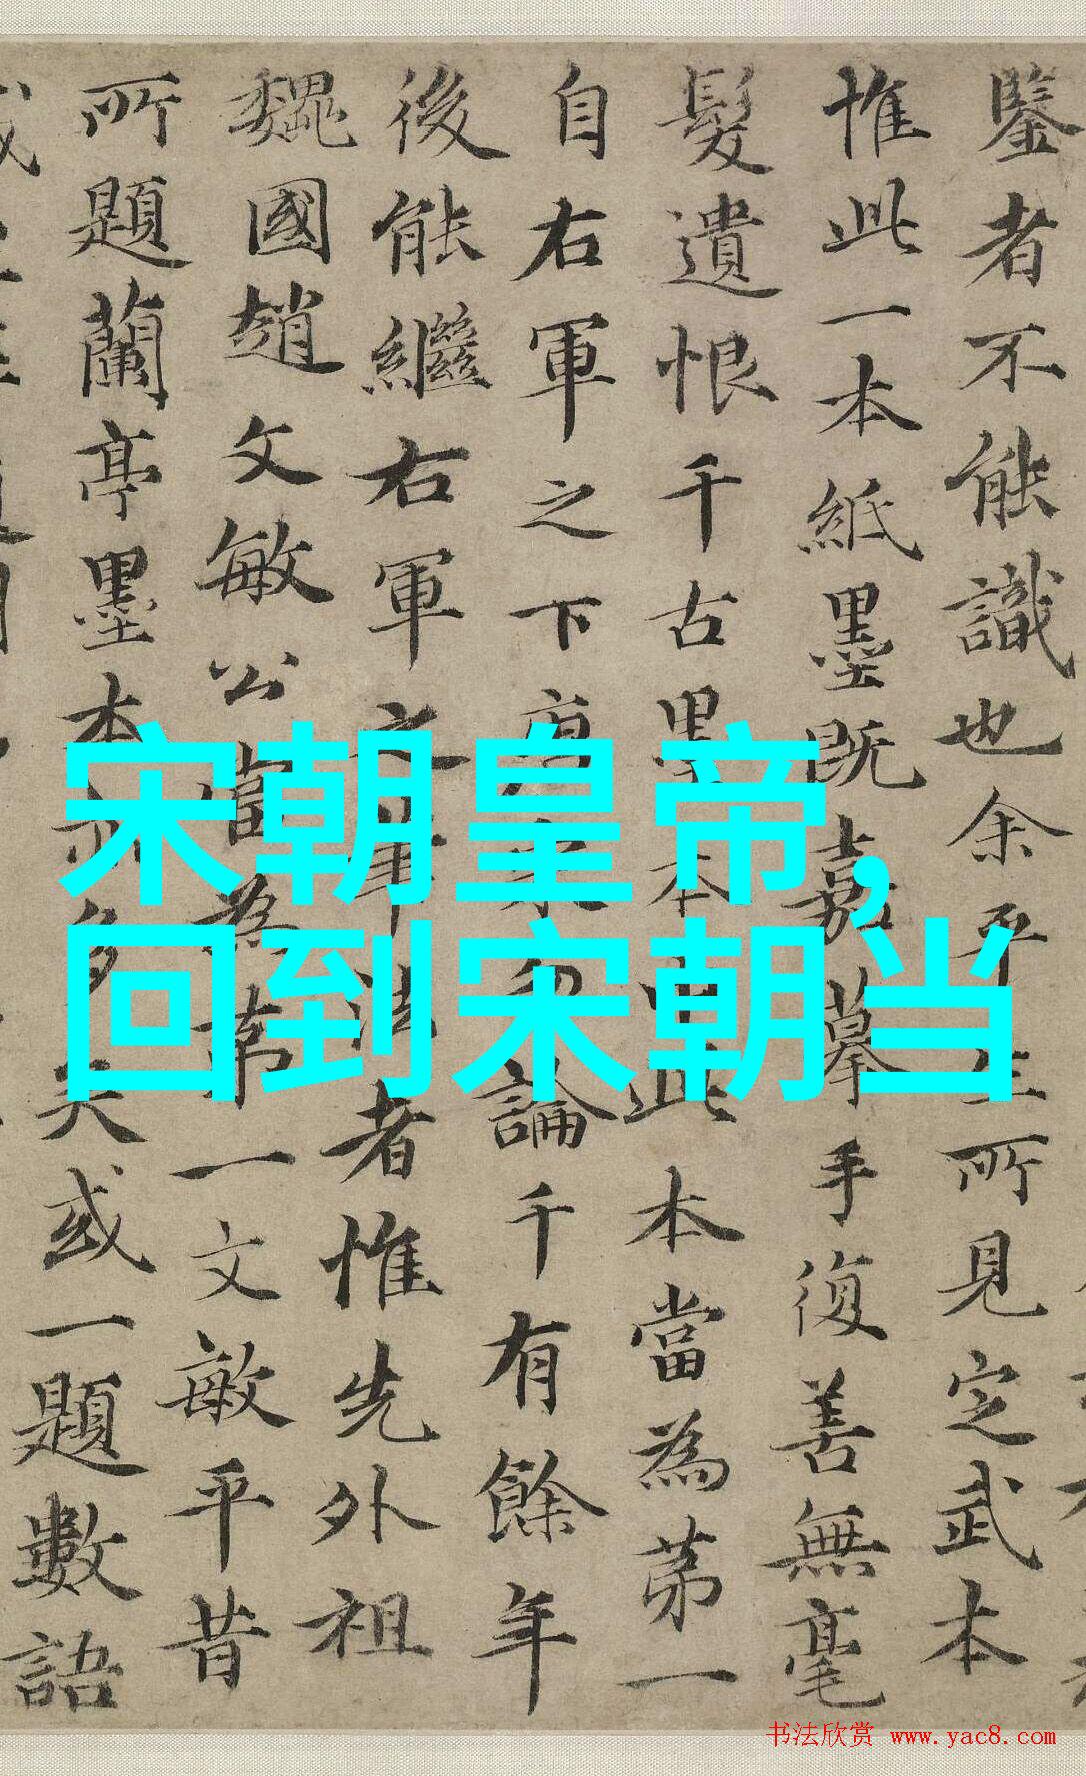 鑒者不能識也余平生所見定武本
惟此一本紙墨既嘉摹手復善無毫
髮遺恨千古墨本此本當為第一
自右軍之下論千有餘年
後能繼右軍之筆法者惟先外祖
魏國趙文敏公當為第一文敏平昔
所題蘭亭墨本亦多矣或一題數語
宋朝皇帝,
回到宋朝当
书法欣赏 www.yac8.com